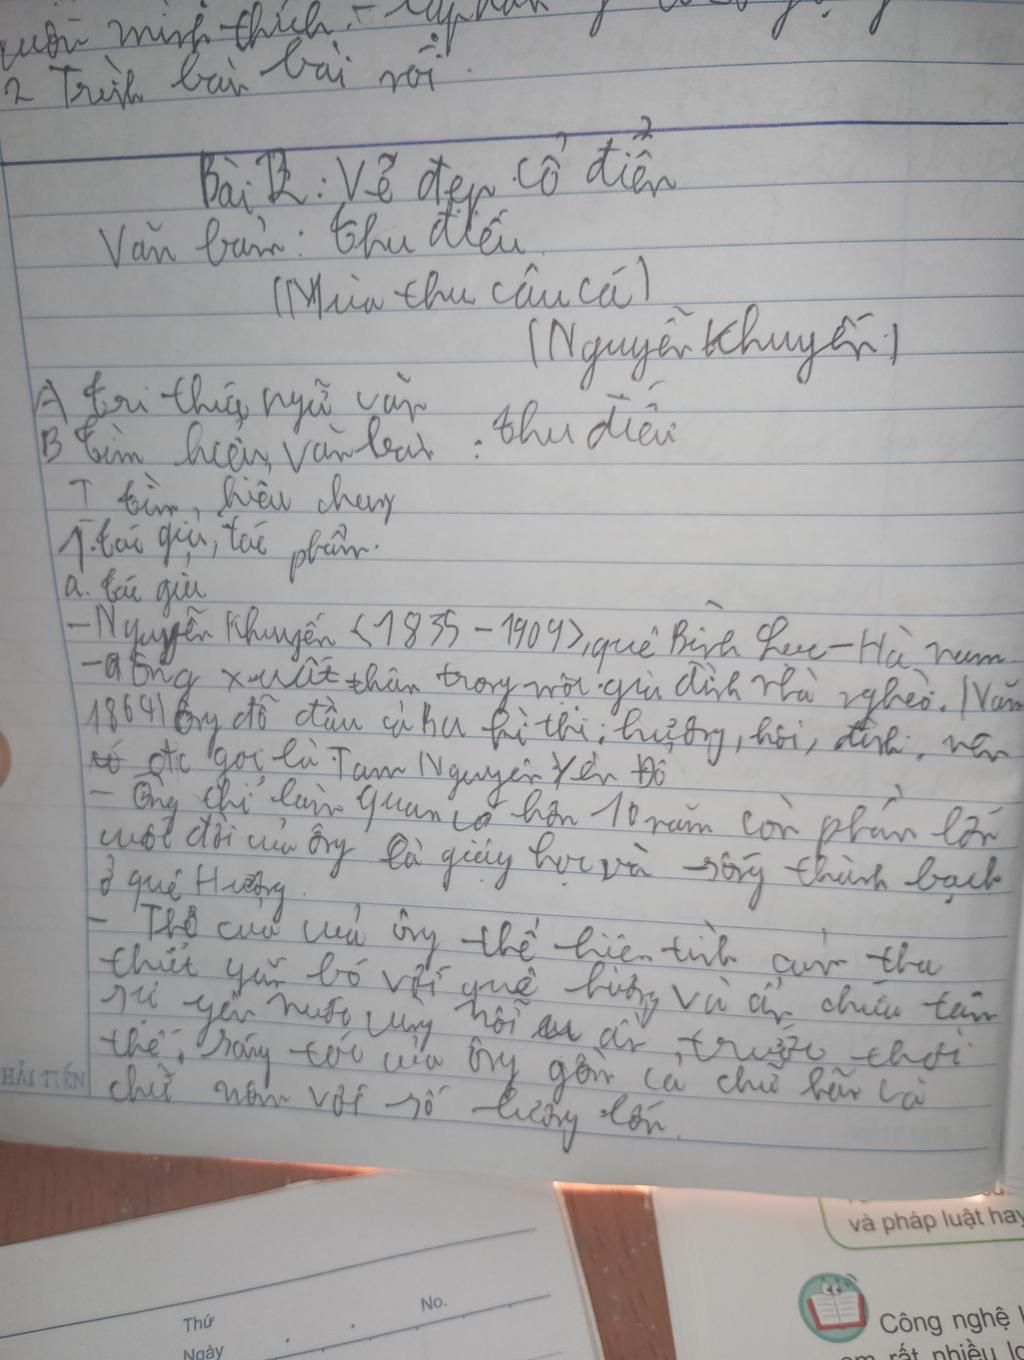 minh thích.
2 Trình bài nói.
Bài 2: Vẻ đẹp cổ điển
Văn bản: thu điếu
(Mùa thu câu cá)
(Nguyễn Khuyến)
A tri thức ngữ văn
B tìm hiểu văn bản : thu điếu
I tìm hiểu chung
1. tác giả, tác phẩm.
a. tác giả
- Nguyễn Khuyến (1835 - 1909), quê Bình Lục - Hà nam
- Ông xuất thân trong một gia đình nhà nghèo. (Năm
1864) ông đỗ đầu cả ba kì thi: hương, hội, đình, nên
đc gọi là Tam Nguyên Yên Đổ
- Ông chỉ làm quan có hơn 10 năm còn phần lớn
cuộc đời của ông là giảng học và sống thanh bạch
ở quê Hương.
- Thơ của ông thể hiện tình cảm tha
thiết gắn bó với quê hương và ẩn chứa tâm
sự yêu nước cùng nỗi ẩn, trước thời
thế, sáng tác của ông gồm cả chữ hán và
chữ nôm với số lượng lớn.
HẢI TIẾN
Thứ
Ngày
No.
và pháp luật hay
Công nghệ
em rất nhiều